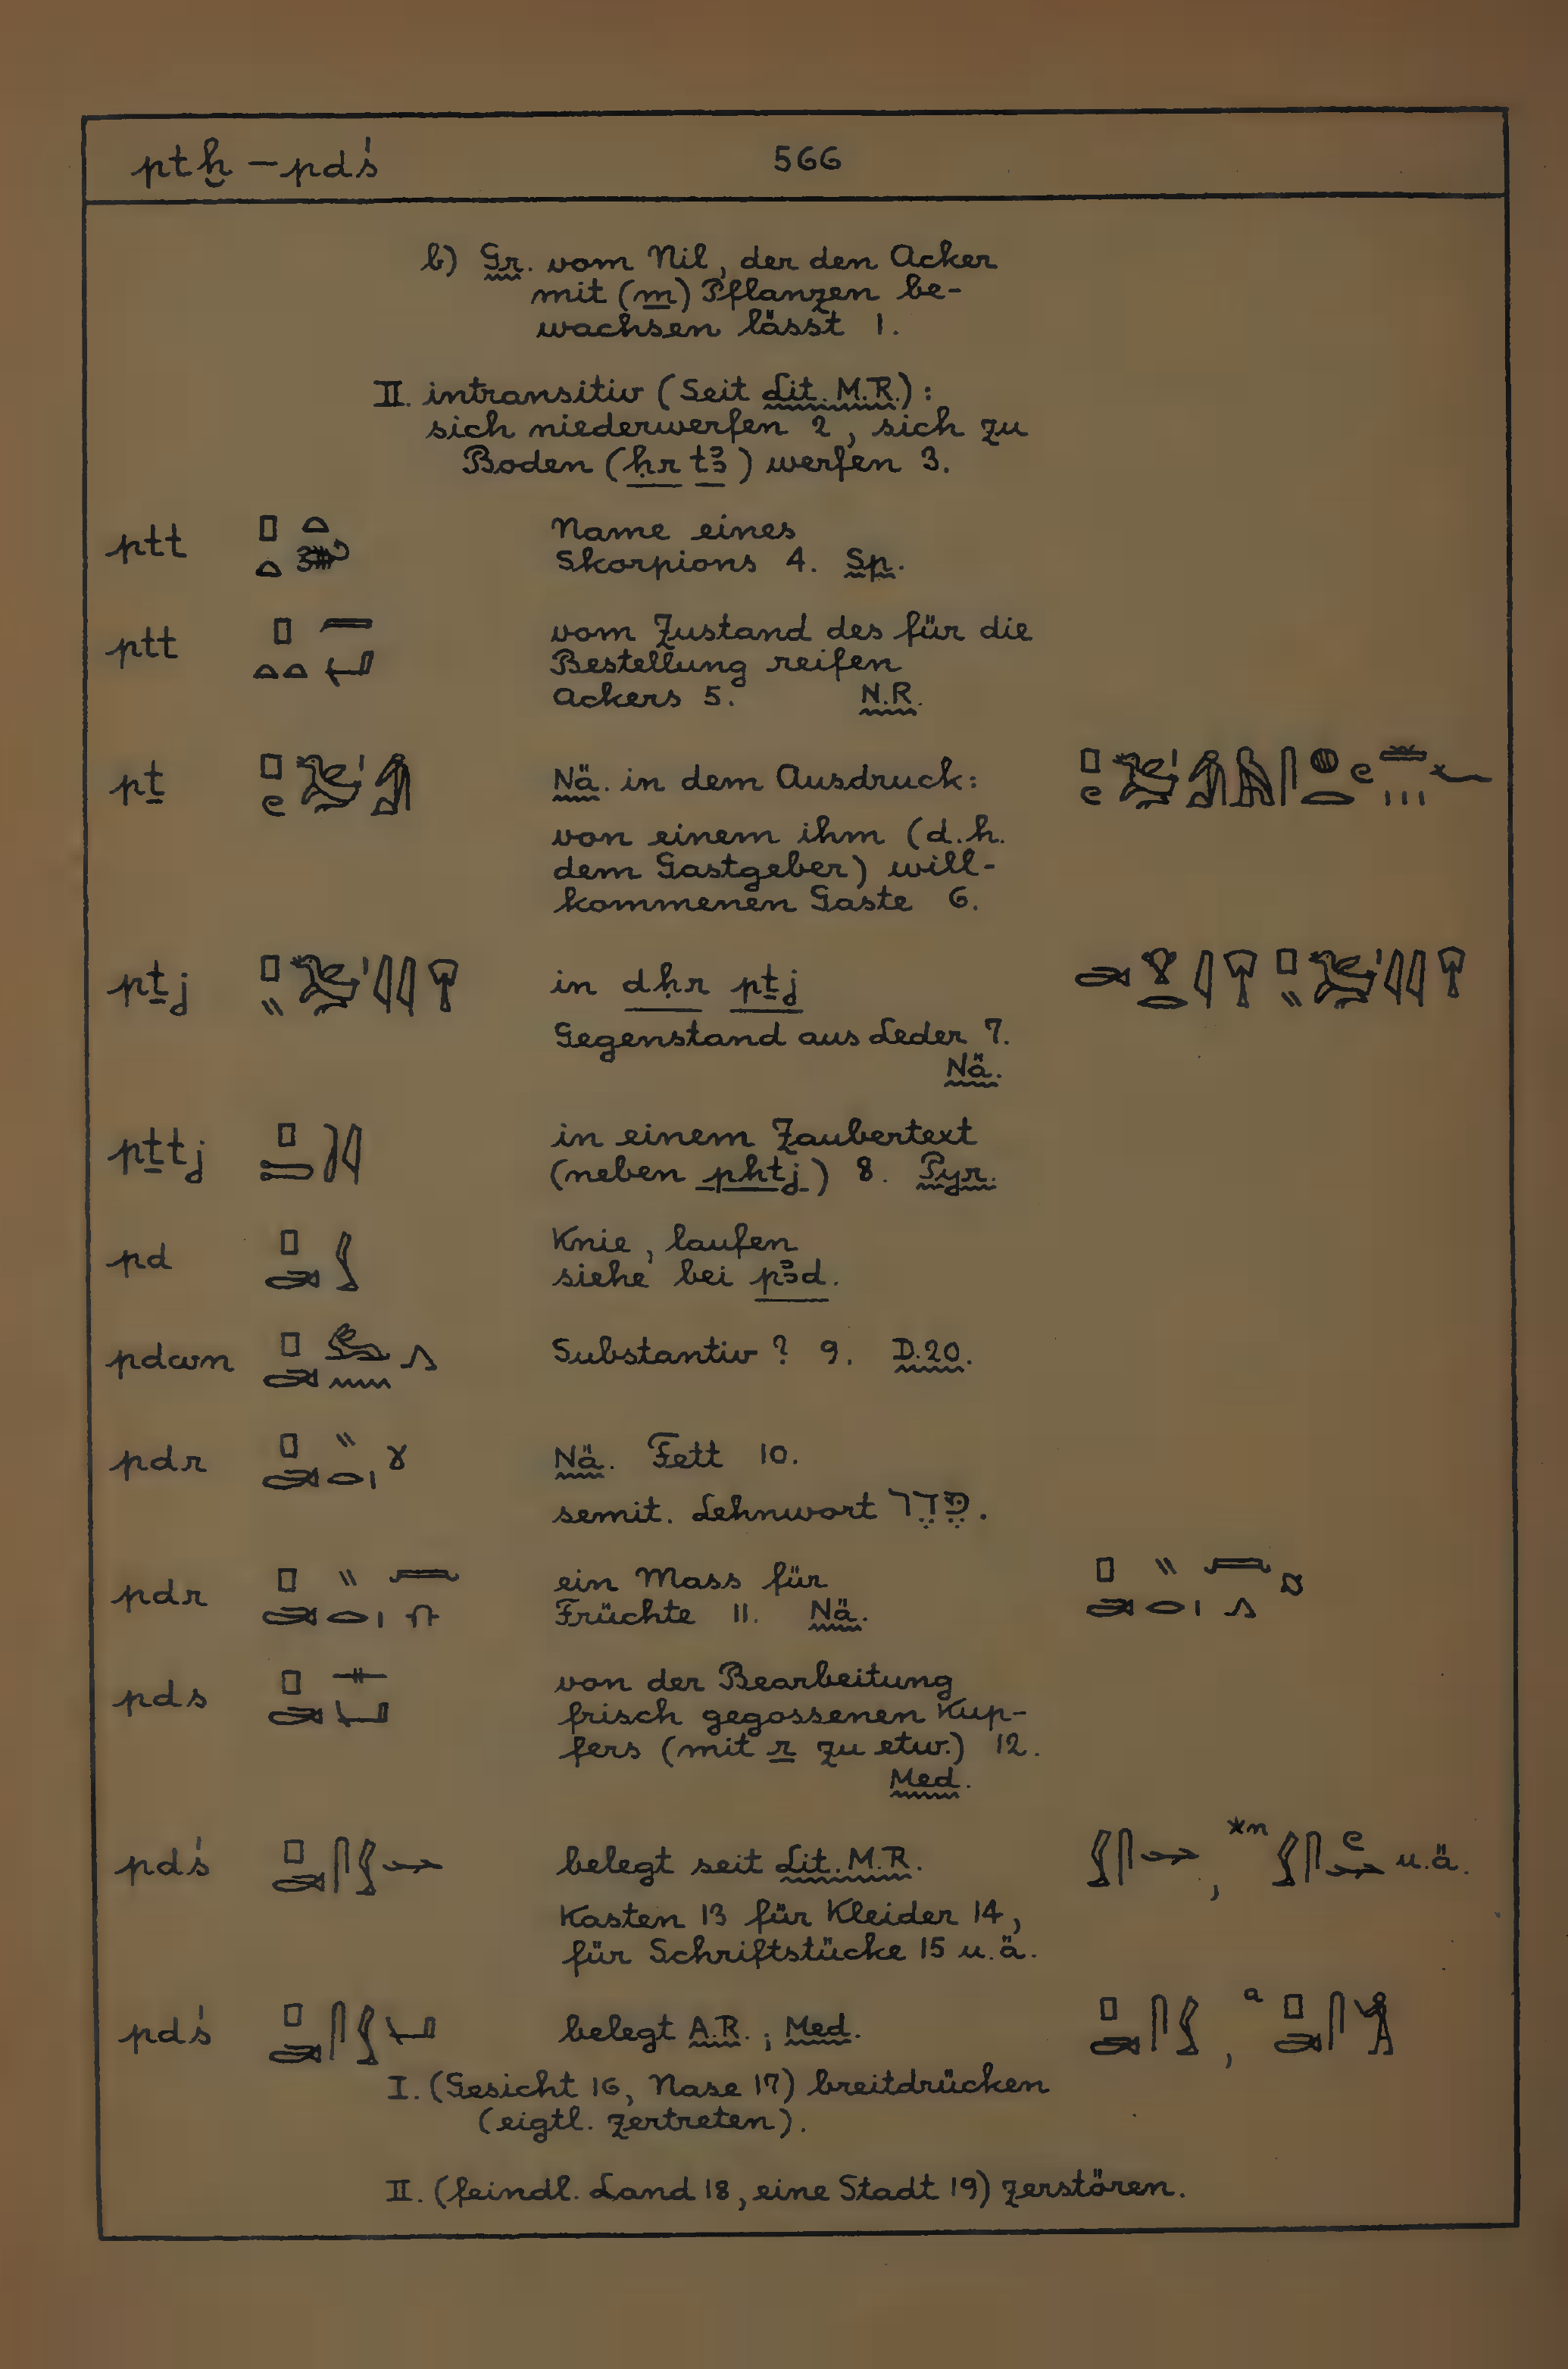 ptḫ – pdś 566
b) Gr. vom Nil, der den Acker
mit (m) Pflanzen be-
wachsen lässt 1.
II. intransitiv (Seit Lit. M.R.):
sich niederwerfen 2, sich zu
Boden (ḥr tꜣ) werfen 3.
ptt Name eines
Skorpions 4. Sp.
ptt vom Zustand des für die
Bestellung reifen
Ackers 5. N.R.
pṯ Nä. in dem Ausdruck:
von einem ihm (d.h.
dem Gastgeber) will-
kommenen Gaste 6.
pṯj in dḥr pṯj
Gegenstand aus Leder 7.
Nä.
pṯtj in einem Zaubertext
(neben phtj) 8. Pyr.
pd Knie, laufen
siehe bei pꜣd.
pdwn Substantiv? 9. D.20.
pdr Nä. Fett 10.
semit. Lehnwort פֶּדֶר.
pdr ein Mass für
Früchte 11. Nä.
pds von der Bearbeitung
frisch gegossenen Kup-
fers (mit r zu etw.) 12.
Med.
pdś belegt seit Lit. M.R. , *n u.ä.
Kasten 13 für Kleider 14,
für Schriftstücke 15 u.ä.
pdś belegt A.R.; Med. , a
I. (Gesicht 16, Nase 17) breitdrücken
(eigtl. zertreten).
II. (feindl. Land 18, eine Stadt 19) zerstören.